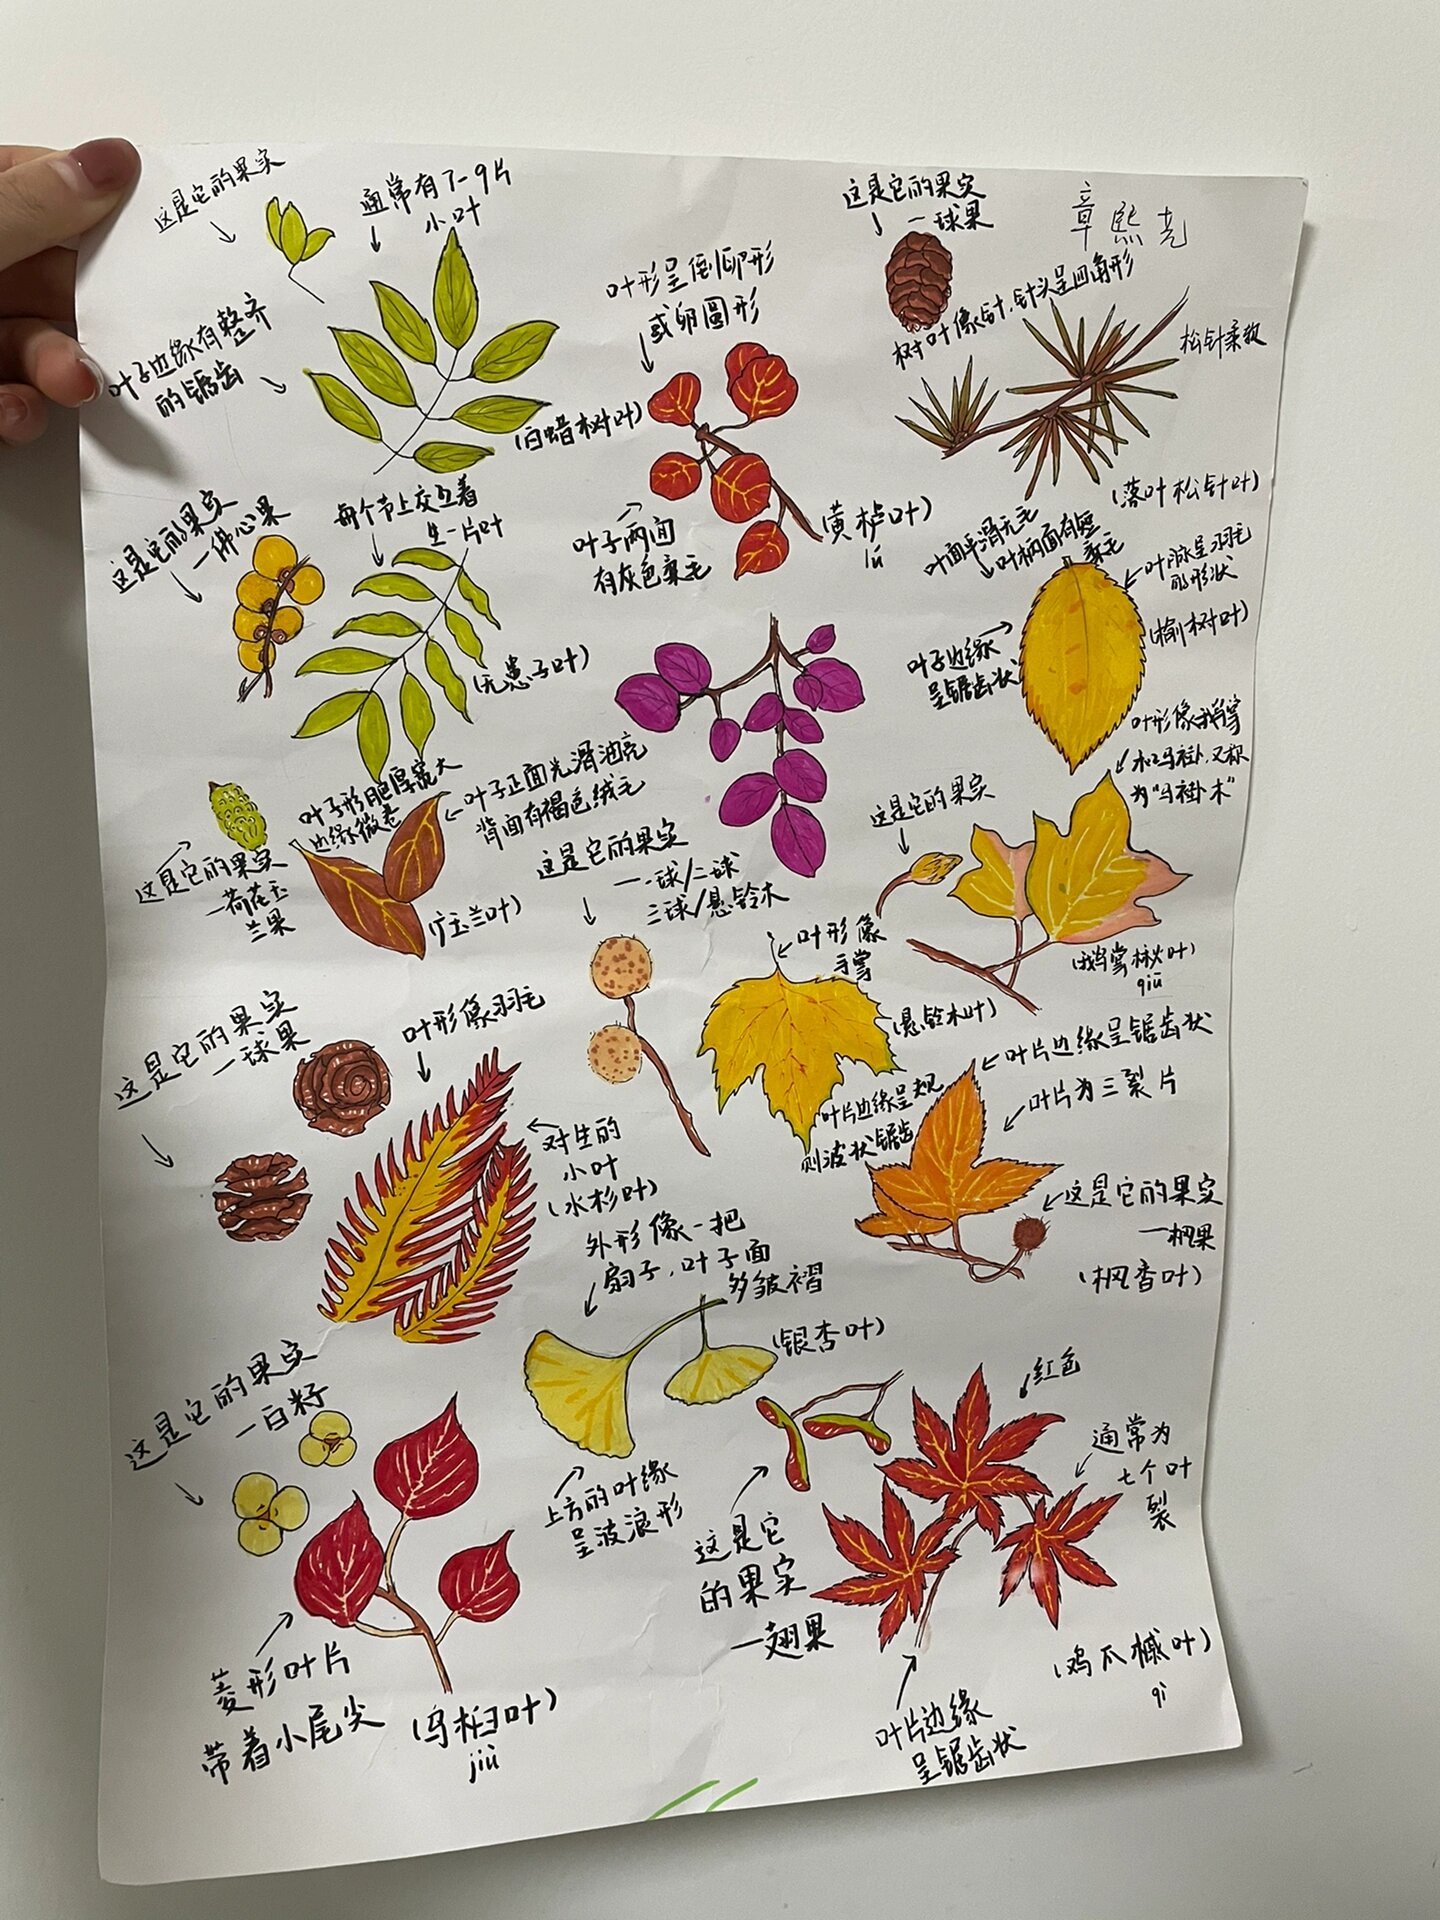 这是它的果实
通常有7-9片
小叶
叶子边缘有整齐
的锯齿
(白蜡树叶)
叶形呈倒卵形
或卵圆形
叶子两面
有灰色柔毛
(黄栌叶)
lú
这是它的果实
一球果
章熙尧
树叶像针,针头呈四角形
松针柔软
(落叶松针叶)
这是它的果实
一佛心果
每个节上交互着
生一片叶
(无患子叶)
叶面平滑无毛
叶柄面有短
柔毛
叶脉呈羽毛
的形状
(榆树叶)
叶子边缘
呈锯齿状
叶子形肥厚宽大
边缘微卷
叶子正面光滑油亮
背面有褐色绒毛
这是它的果实
一荷花玉
兰果
(广玉兰叶)
这是它的果实
一一球/二球
三球/悬铃木
叶形像
手掌
(悬铃木叶)
叶片边缘呈规
则波状锯齿
叶形像鹅掌
和马褂,又称
为“马褂木”
这是它的果实
(鹅掌楸叶)
qiū
这是它的果实
一球果
叶形像羽毛
对生的
小叶
(水杉叶)
叶片边缘呈锯齿状
叶片为三裂片
这是它的果实
一枫果
(枫香叶)
外形像一把
扇子,叶子面
多皱褶
(银杏叶)
上方的叶缘
呈波浪形
这是它的果实
一白籽
菱形叶片
带着小尾尖
(乌桕叶)
jiù
红色
通常为
七个叶
裂
这是它
的果实
一翅果
叶片边缘
呈锯齿状
(鸡爪槭叶)
qi